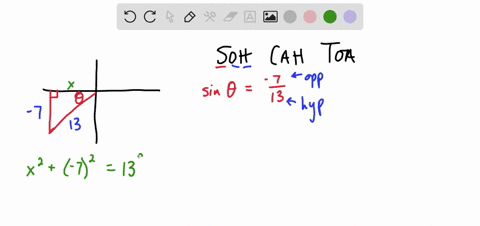 SOH CAH TOA
sin θ = -7/13 ← opp
← hyp
x
θ
-7
13
x² + (-7)² = 13